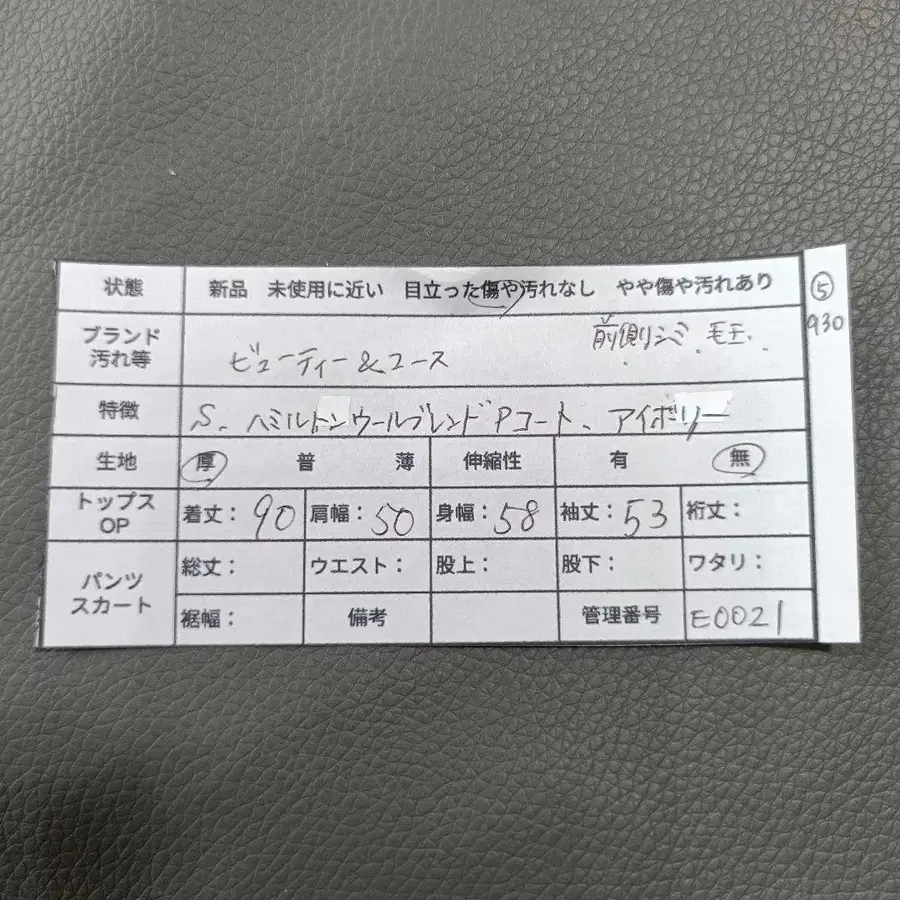 状態 新品 未使用に近い 目立った傷や汚れなし やや傷や汚れあり ⑤
930
ブランド 汚れ等 ビューティー&ユース 前側シミ、毛玉
特徴 S、ハミルトンウールブレンドPコート、アイボリー
生地 厚 普 薄 伸縮性 有 無
トップス OP 着丈：90 肩幅：50 身幅：58 袖丈：53 裄丈：
パンツ スカート 総丈： ウエスト： 股上： 股下： ワタリ：
裾幅： 備考 管理番号 E0021